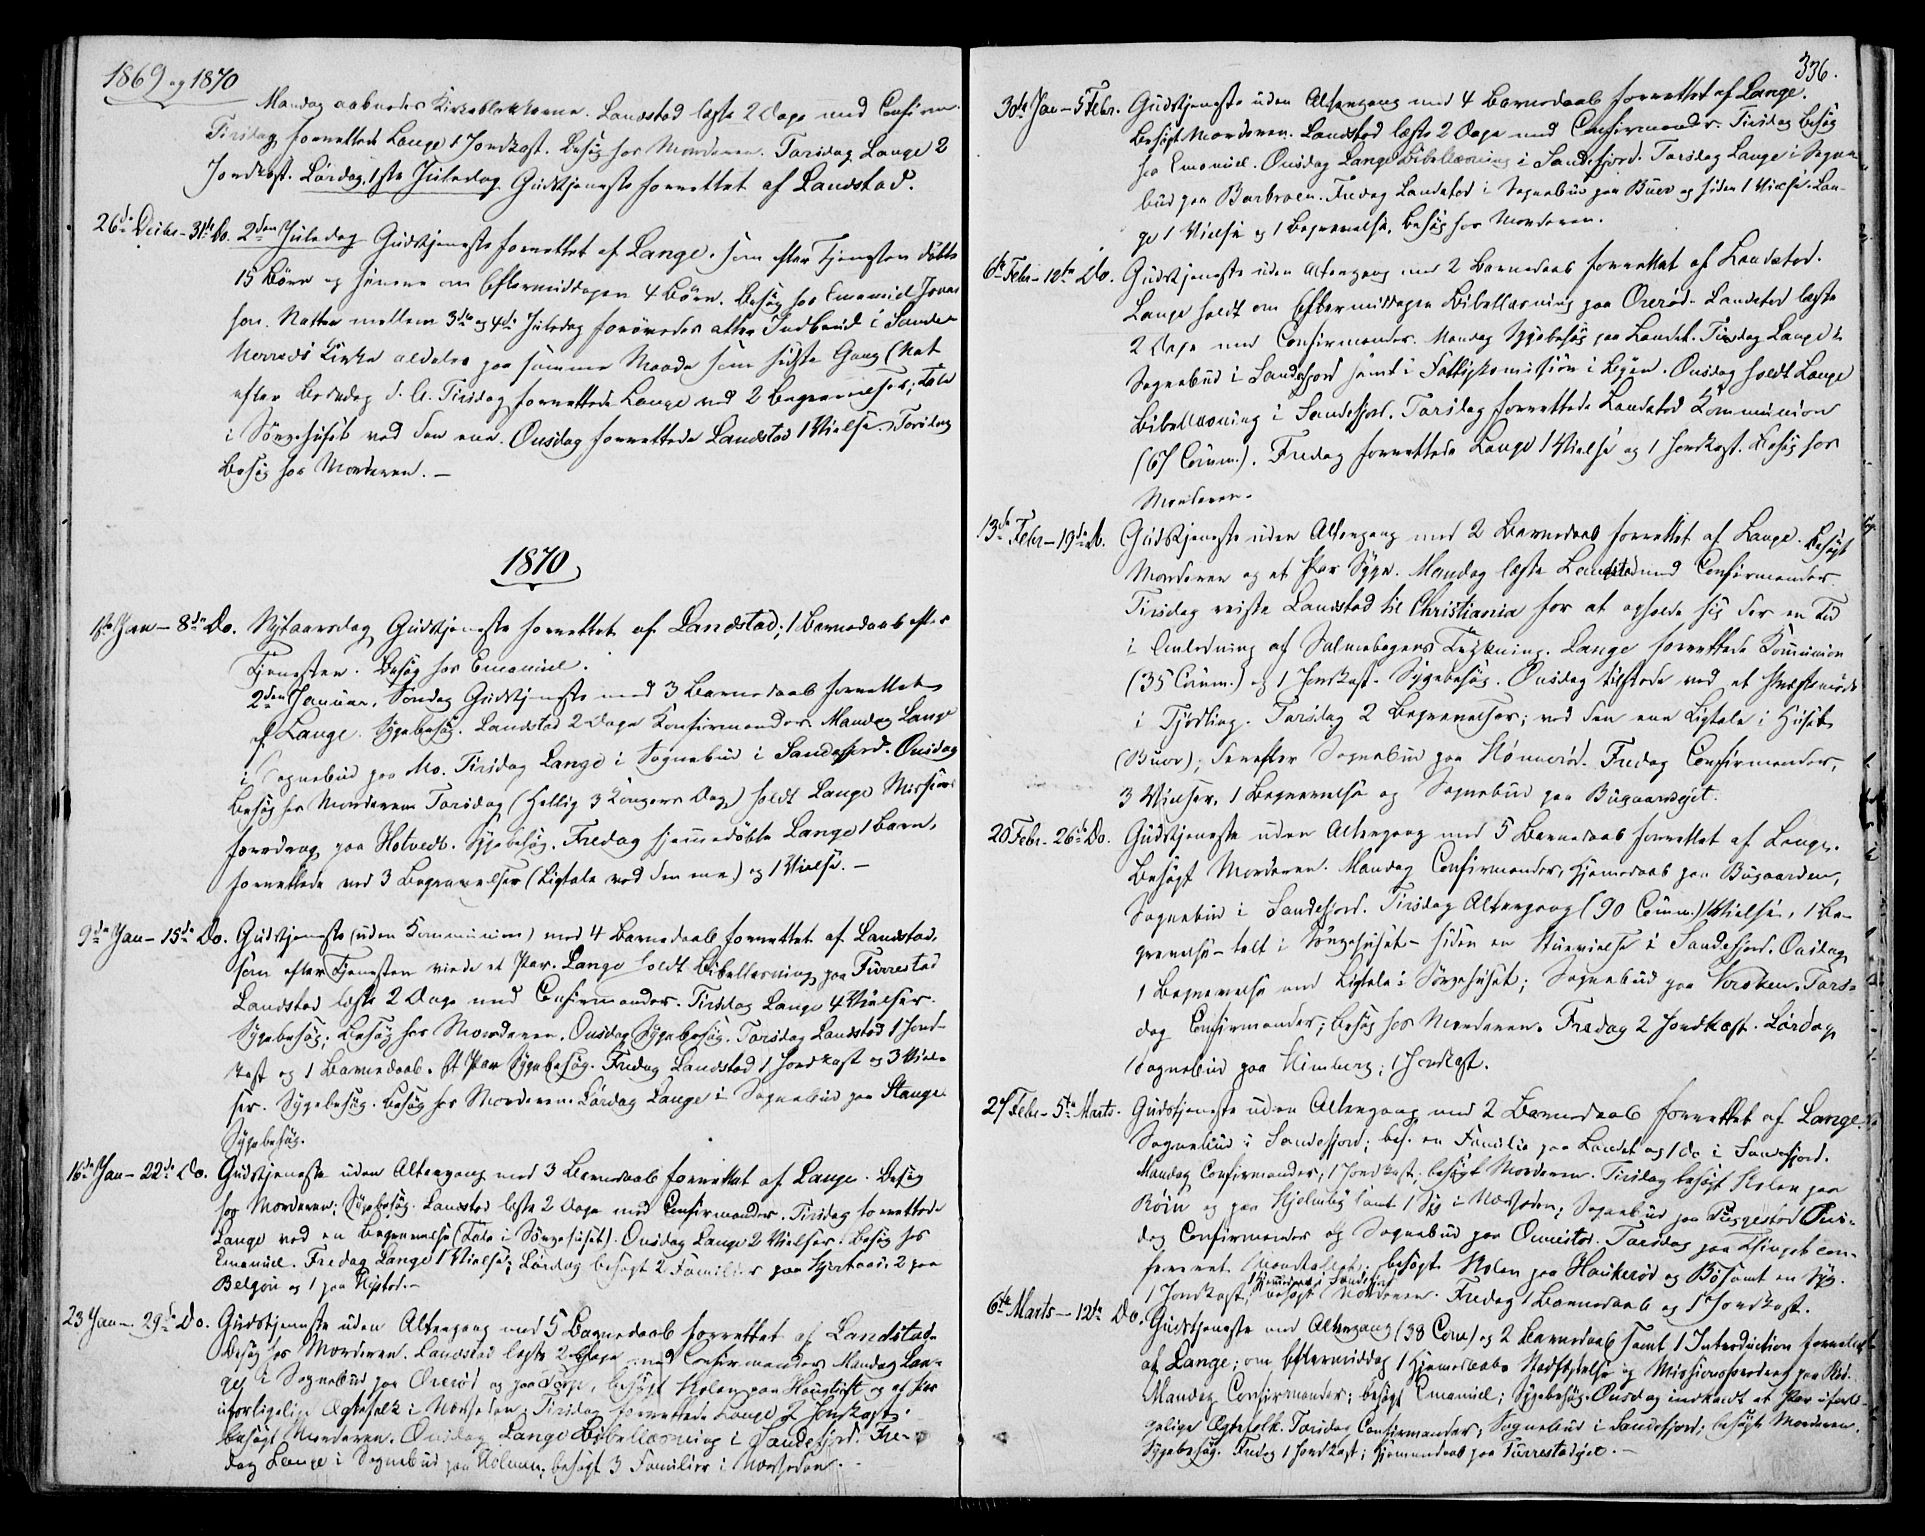 1869 og 1870
Mandag aabnedes Kirkeblokkerne. Landstad læste 2 Dage med Confirm.
Tirsdag forrettede Lange 1 Jordkast. Besøg hos Morderen. Torsdag Lange 2
Jordkast. Lördag, 1ste Juledag Gudstjeneste forrettet af Landstad.
26de Decbr – 31te Do. 2den Juledag Gudstjeneste forrettet af Lange, som efter Tjenesten döbte
15 Börn og senere om Eftermiddagen 4 Börn. Besøg hos Emanuel Jonas
sen. Natten mellem 3die og 4de Juledag forövedes atter Indbrud i Sande-
herreds Kirke aldeles paa samme Maade som sidste Gang (Nat
efter Bededag d. A. Tirsdag forrettede Lange ved 2 Begravelser; Tale
i Sörgehuset ved den ene. Onsdag forrettede Landstad 1 Vielse. Torsdag
Besøg hos Morderen. –
1870
1ste Jan – 8de Do. Nytaarsdag Gudstjeneste forrettet af Landstad; 1 Barnedaab efter
Tjenesten. Besøg hos Emanuel.
2den Januar, Söndag Gudstjeneste med 3 Barnedaab forrettet
af Lange. Sygebesög. Landstad 2 Dage Konfirmander. Mandag Lange
i Sognebud paa Mo. Tirsdag Lange i Sognebud i Sandefjord. Onsdag
Besøg hos Morderen. Torsdag (Hellig 3 Kongers Dag) holdt Lange Missions
foredrag paa Hotvedt. Sygebesög. Fredag hjemmedöbte Lange 1 Barn,
forrettede ved 3 Begravelser (Ligtale ved den ene) og 1 Vielse. –
9de Jan – 15de Do. Gudstjeneste (uden Kommunion) med 4 Barnedaab forrettet af Landstad,
som efter Tjenesten viede et Par. Lange holdt Bibellæsning paa Furrestad
Landstad læste 2 Dage med Confirmander. Tirsdag Lange 4 Vielser.
Sygebesög; Besög hos Morderen. Onsdag Sygebesög. Torsdag Landstad 1 Jord-
kast og 1 Barnedaab. Et Par Sygebesög. Fredag Landstad 1 Jordkast og 3 Viel-
ser. Sygebesög. Besög hos Morderen. Lördag Lange i Sognebud paa Stange.
Sygebesög.
16de Jan – 22de Do. Gudstjeneste uden Altergang med 3 Barnedaab forrettet af Lange. Besög
hos Morderen; Sygebesög. Landstad læste 2 Dage med Confirmander. Tirsdag forrettede
Lange ved en Begravelse (Tale i Sörgehuset). Onsdag Lange 2 Vielser. Besög hos
Emanuel. Fredag Lange 1 Vielse; Lördag besögt 2 Familier paa Hjertaas, 2 paa
Belgon og 1 paa Nystad. –
23 Jan – 29de Do. Gudstjeneste uden Altergang med 5 Barnedaab forrettet af Landstad.
Besög hos Morderen. Landstad læste 2 Dage med Confirmander. Mandag Lan-
ge i Sognebud paa Orerød og paa Torp, besögt Skolen paa Haugtuft og et Par
uforligelige Ægtefolk i Næsseden. Tirsdag forrettede Lange 2 Jordkast.
Besögt Morderen. Onsdag Lange Bibellæsning i Sandefjord. Fre-
dag Lange i Sognebud paa Holmen; besögt 3 Familier i Næsseden. –
336.
30de Jan – 5 Febr. Gudstjeneste uden Altergang med 4 Barnedaab forrettet af Lange.
Besögt Morderen. Landstad læste 2 Dage med Confirmander. Tirsdag Besög
hos Emanuel. Onsdag Lange Bibellæsning i Sandefjord. Torsdag Lange i Sogne-
bud paa Barbroen. Fredag Landstad i Sognebud paa Buer og siden 1 Vielse. Lan-
ge 1 Vielse og 1 Begravelse. Besög hos Morderen.
6te Febr – 12te Do. Gudstjeneste uden Altergang med 2 Barnedaab forrettet af Landstad.
Lange holdt om Eftermiddagen Bibellæsning paa Orerød. Landstad læste
2 Dage med Confirmander. Mandag Sygebesög paa Landet. Tirsdag Lange i
Sognebud i Sandefjord samt i Fattigkomission i Byen. Onsdag holdt Lange
Bibellæsning i Sandefjord. Torsdag forrettede Landstad Kommunion
(67 Comm.). Fredag forrettede Lange 1 Vielse og 1 Jordkast. Besög hos
Morderen.
13de Febr – 19de Do. Gudstjeneste uden Altergang med 2 Barnedaab forrettet af Lange. Besögt
Morderen og et Par Syge. Mandag læste Landstad med Confirmander.
Tirsdag reiste Landstad til Christiania for at opholde sig der en Tid
i Anledning af Salmebogens Trykning. Lange forrettede Kommunion
(35 Comm.) og 1 Jordkast. Sygebesög. Onsdag tilstede ved et Præstemöde
i Tjödling. Torsdag 2 Begravelser; ved den ene Ligtale i Huset
(Buer); derefter Sognebud paa Nönnerød. Fredag Confirmander,
3 Vielser, 1 Begravelse og Sognebud paa Bugaardsejet.
20 Febr – 26de Do. Gudstjeneste uden Altergang med 5 Barnedaab forrettet af Lange.
Besögt Morderen. Mandag Confirmander, Hjemedaab paa Bugaarden,
Sognebud i Sandefjord. Tirsdag Altergang (90 Comm.) 1 Vielse, 1 Be-
gravelse – talt i Sörgehuset – siden en Stuevielse i Sandefjord. Onsdag
1 Begravelse med Ligtale i Sörgehuset; Sognebud paa Kroken. Tors-
dag Confirmander; Besög hos Morderen. Fredag 2 Jordkast. Lördag
1 Sognebud paa Himberg; 1 Jordkast.
27 Febr – 5te Marts. Gudstjeneste uden Altergang med 2 Barnedaab forrettet af Lange.
Sognebud i Sandefjord; bes. en Familie paa Landet og 1 Do i Sandefjord.
Mandag Confirmander, 1 Jordkast, besögt Morderen. Tirsdag besögt Skolen paa
Röin og paa Hjelmby samt 1 Syg i Næsseden; Sognebud paa Fuggestad. Ons-
dag Confirmander og Sognebud paa Onnestad. Torsdag paa Thinget con-
fereret; besögt Skolen paa Haukerød og Bö samt en Syg.
1 Jordkast; besögt Morderen. Fredag 1 Barnedaab og 1 Jordkast.
6te Marts – 12te Do. Gudstjeneste med Altergang (38 Com) og 2 Barnedaab samt 1 Introduction forrettet
af Lange; om Eftermiddag 1 Hjemedaabs Stadfæstelse og Missionsforedrag paa Bö.
Mandag Confirmander; besögt Emanuel; Sygebesög. Onsdag indkaldt et Par ufor-
gelige Ægtefolk. Torsdag Confirmander, Sognebud i Sandefjord; besögt Morderen.
Sygebesög. Fredag 1 Jordkast; Hjemmedaab paa Furrestadejet. –